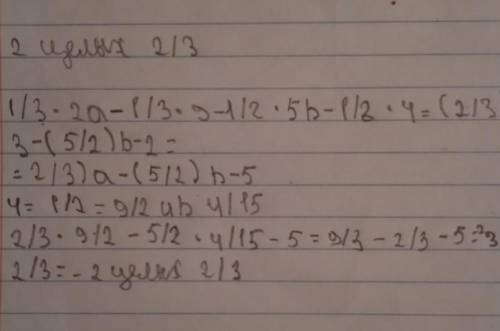 2 целых 2/3
1/3 · 2a - 1/3 · 9 - 1/2 · 5b - 1/2 · 4 = (2/3
3 - (5/2) b - 2 =
= 2/3) a - (5/2) b - 5
4 = 1/2 = 9/2 и b 4/15
2/3 · 9/2 - 5/2 · 4/15 - 5 = 9/3 - 2/3 - 5 =
2/3 = - 2 целых 2/3